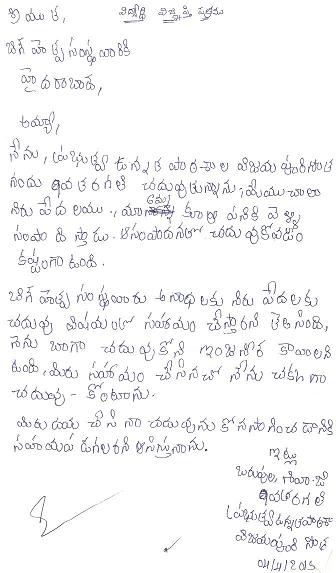 శ్రీయుత, విద్యార్థి విజ్ఞప్తి పత్రము
బిగ్ హెల్ప్ సంస్థవారికి
హైదరాబాదు,
అమ్మా,
నేను, ప్రభుత్వ ఉన్నత పాఠశాల విజయపురిసౌత్
నందు 9వతరగతి చదువుతున్నాను; మేము చాలా
నిరుపేదలము., మా అమ్మ కూలి పనికి వెళ్ళి
సంపాదిస్తాడు. ఆసంపాదనలో చదువుకోవడం
కష్టంగా ఉంది.
బిగ్ హెల్ప్ సంస్థవారు అనాధలకు నిరుపేదలకు
చదువు విషయంలో సహాయం చేస్తారని తెలిసింది,
నేను బాగా చదువుకోని ఇంజనీర్ కావాలని
ఉంది, మీరు సహాయం చేసినచో నేను చక్కగా
చదువు - కోంటాను.
మీరు దయ చేసి నా చదువును కోనసాగించడానికి
సహాయపడగలరని ఆసిస్తున్నాను.
ఇట్లు
9వతరగతి
ప్రభుత్వ ఉన్నత పాఠశాల
విజయపురి సౌత్
04/4/2015